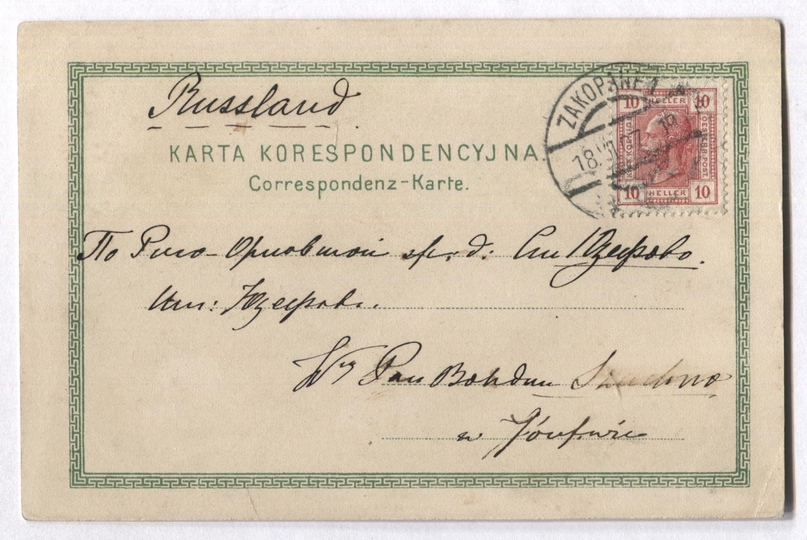 Russland
KARTA KORESPONDENCYJNA.
Correspondenz-Karte.
ZAKOPANE 1
18. VII
10 HELLER 10
10 HELLER 10
По Риго-Орловской ж. д. Ст. Юзефово.
Им: Юзефово.
Wny Pan Bohdan
w Józefowie